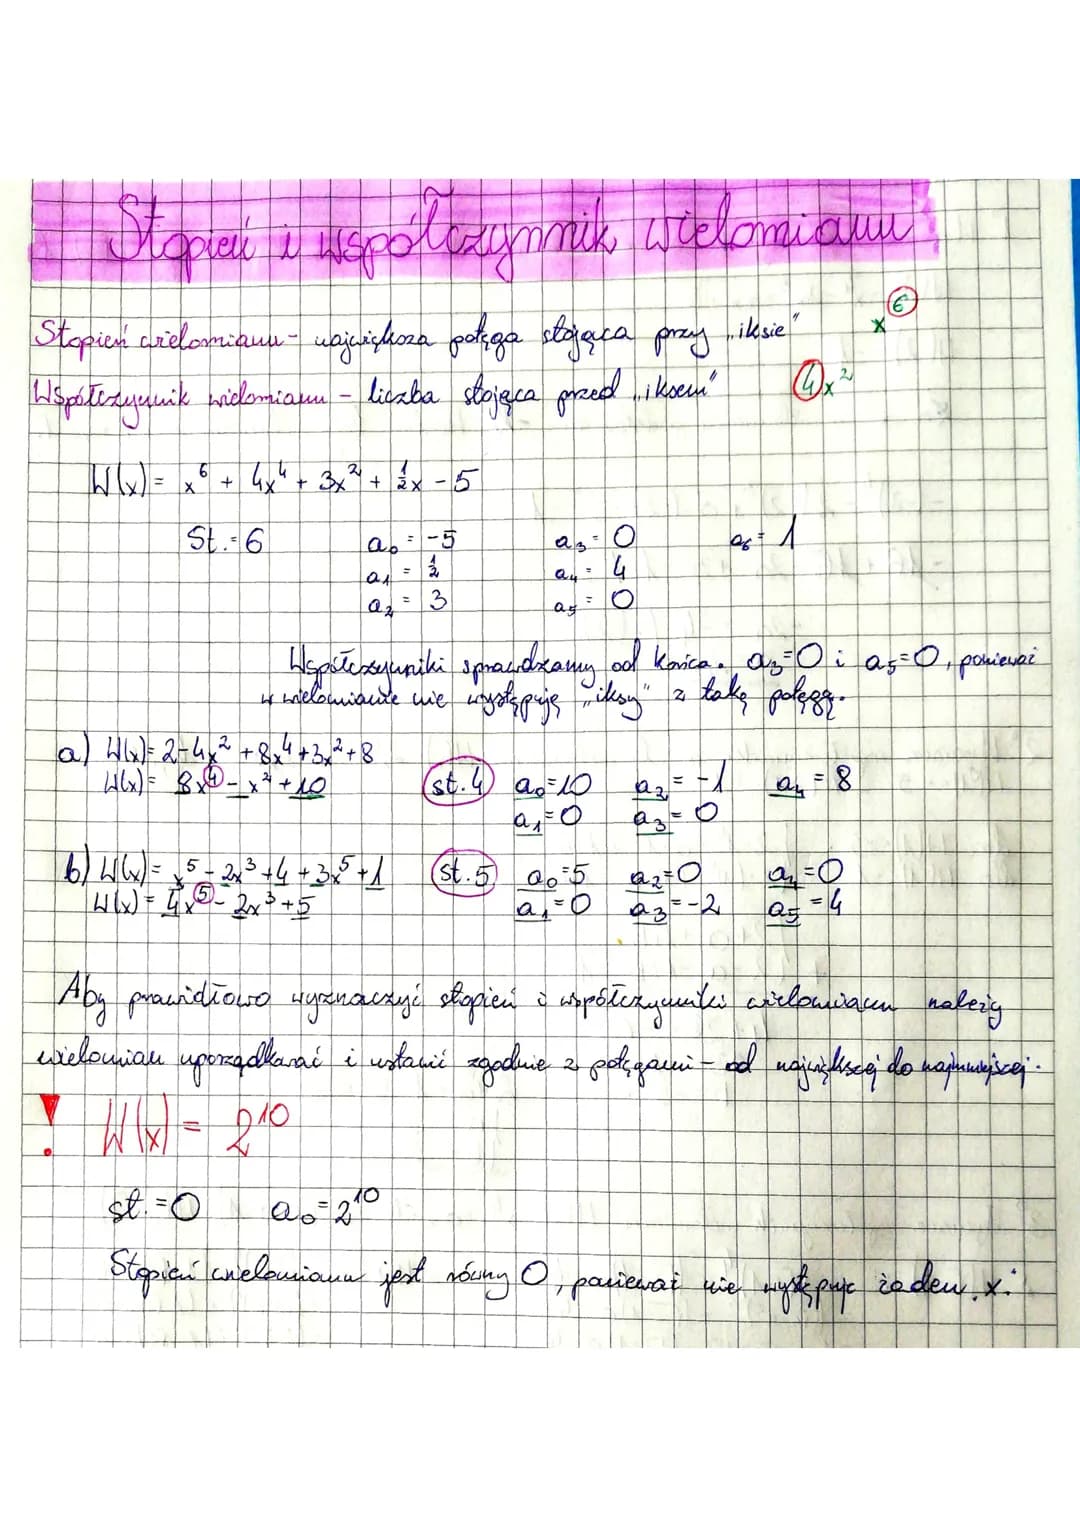 Stopień i współczynnik wielomianu
Stopień wielomianu - największa potęga stojąca przy „iksie" x⁶
Współczynnik wielomianu - liczba stojąca przed „iksem" 4x²
W(x) = x⁶ + 4x⁴ + 3x² + ½x - 5
St. = 6 a₀ = -5 a₃ = 0 a₆ = 1
a₁ = ½ a₄ = 4
a₂ = 3 a₅ = 0
Współczynniki sprawdzamy od końca. a₃=0 i a₅=0, ponieważ
w wielomianie nie występują „iksy" z taką potęgą.
a) W(x)= 2-4x²+8x⁴+3x²+8
W(x)= 8x⁴ - x² + 10 st. 4 a₀=10 a₂ = -1 a₄ = 8
a₁=0 a₃= 0
b) W(x)= x⁵ - 2x³ + 4 + 3x⁵ + 1 st. 5 a₀=5 a₂=0 a₄=0
W(x) = 4x⁵ - 2x³ + 5 a₁=0 a₃=-2 a₅ = 4
Aby prawidłowo wyznaczyć stopień i współczynniki wielomianu należy
wielomian uporządkować i ustawić zgodnie z potęgami - od największej do najmniejszej.
! W(x) = 2¹⁰
st. = 0 a₀ = 2¹⁰
Stopień wielomianu jest równy 0, ponieważ nie występuje żaden „x."